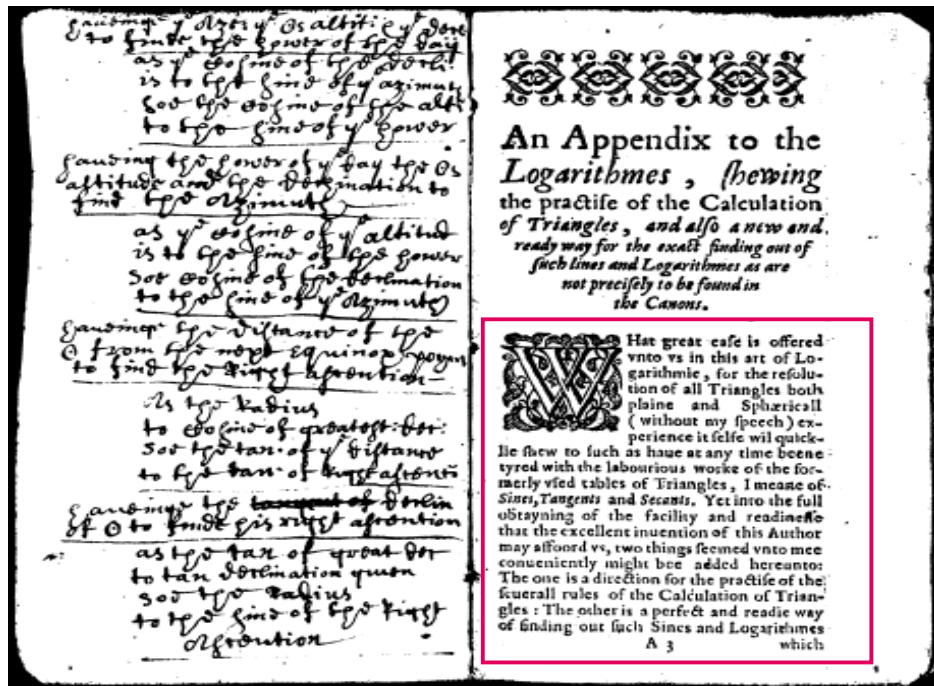 haueinge yᵉ Azer yᵉ ʘs altiti yᵉ decl
to finde the hower of the day
as yᵉ cosine of the decli:
is to the sine of yᵉ azimuth
soe the cosine of the alt:
to the sine of yᵉ hower
haueing the hower of yᵉ day the ʘs
altitude and the declination to
find the Azimuth
as yᵉ cosine of yᵉ altitud
is to the sine of the hower
soe cosine of the declination
to the sine of yᵉ Azimuth
haueinge the distance of the
ʘ from the next Equinox
to find the Right ascention
As the Radius
to cosine of greatest dec:
soe the tan: of yᵉ distance
to the tan: of Right ascenti
haueinge the declin
of ʘ to finde his right ascention
as the tan of great dec
to tan declination giuen
soe the Radius
to the sine of the Right
Ascention
An Appendix to the
Logarithmes , ſhewing
the practiſe of the Calculation
of Triangles, and alſo a new and
ready way for the exact finding out of
ſuch lines and Logarithmes as are
not preciſely to be found in
the Canons.
WHat great eaſe is offered
vnto vs in this art of Lo-
garithmie, for the reſolu-
tion of all Triangles both
plaine and Sphæricall
(without my ſpeech) ex-
perience it ſelfe wil quick-
lie ſhew to ſuch as haue at any time beene
tyred with the labourious worke of the for-
merly vſed tables of Triangles, I meane of
Sines, Tangents and Secants. Yet into the full
obtayning of the facility and readineſſe
that the excellent inuention of this Author
may affoord vs, two things ſeemed vnto mee
conueniently might bee added hereunto:
The one is a direction for the practiſe of the
ſeuerall rules of the Calculation of Trian-
gles : The other is a perfect and readie way
of finding out ſuch Sines and Logarithmes
A 3 which